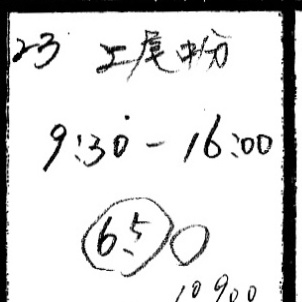 23 上尾中分
9:30-16:00
6.5
10900